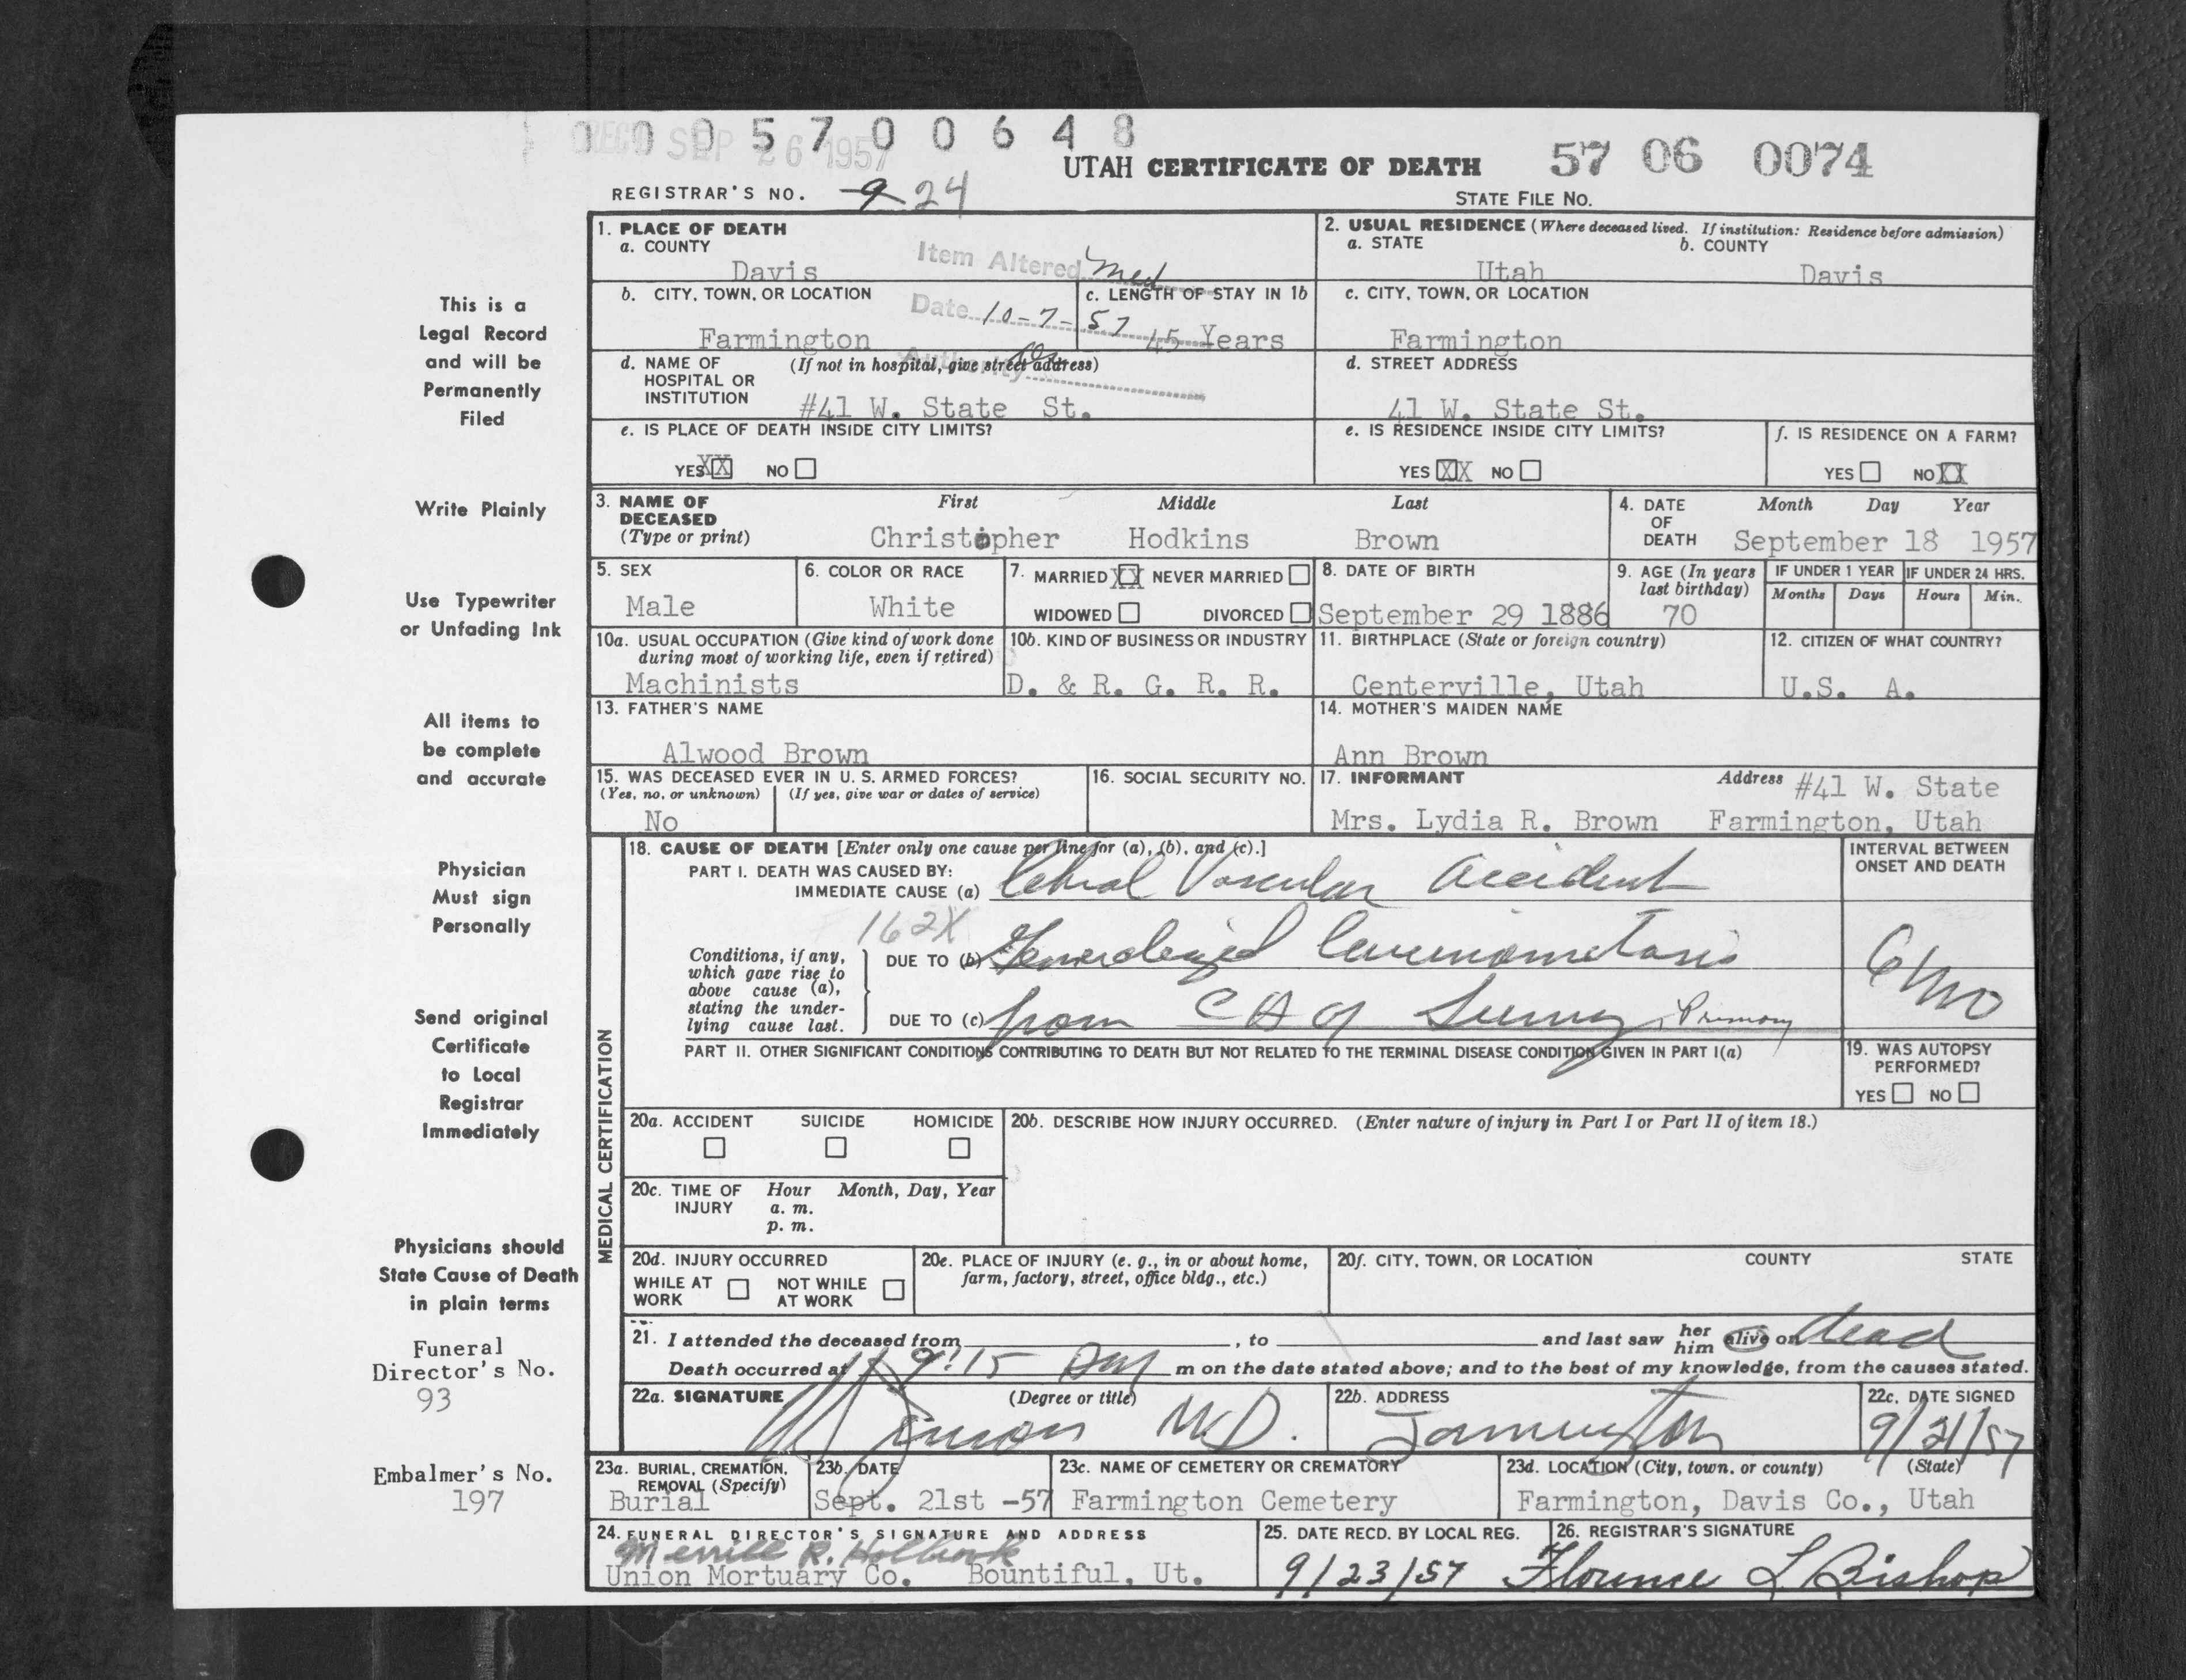 REC'D SEP 26 1957
0 0 0 5 7 0 0 6 4 8
UTAH CERTIFICATE OF DEATH 57 06 0074
REGISTRAR'S NO. 9 24 STATE FILE NO.
This is a
Legal Record
and will be
Permanently
Filed
Write Plainly
Use Typewriter
or Unfading Ink
All items to
be complete
and accurate
Physician
Must sign
Personally
Send original
Certificate
to Local
Registrar
Immediately
Physicians should
State Cause of Death
in plain terms
Funeral
Director's No.
93
Embalmer's No.
197
1. PLACE OF DEATH
a. COUNTY
Davis
Item Altered Med
Date 10-7-57
Authority
2. USUAL RESIDENCE (Where deceased lived. If institution: Residence before admission)
a. STATE b. COUNTY
Utah Davis
b. CITY, TOWN, OR LOCATION
Farmington
c. LENGTH OF STAY IN 1b
45 Years
c. CITY, TOWN, OR LOCATION
Farmington
d. NAME OF (If not in hospital, give street address)
HOSPITAL OR
INSTITUTION #41 W. State St.
d. STREET ADDRESS
41 W. State St.
e. IS PLACE OF DEATH INSIDE CITY LIMITS?
YES XX NO
e. IS RESIDENCE INSIDE CITY LIMITS?
YES XX NO
f. IS RESIDENCE ON A FARM?
YES NO XX
3. NAME OF First Middle Last
DECEASED
(Type or print) Christopher Hodkins Brown
4. DATE Month Day Year
OF
DEATH September 18 1957
5. SEX
Male
6. COLOR OR RACE
White
7. MARRIED XX NEVER MARRIED
WIDOWED DIVORCED
8. DATE OF BIRTH
September 29 1886
9. AGE (In years
last birthday)
70
IF UNDER 1 YEAR IF UNDER 24 HRS.
Months Days Hours Min.
10a. USUAL OCCUPATION (Give kind of work done
during most of working life, even if retired)
Machinists
10b. KIND OF BUSINESS OR INDUSTRY
D. & R. G. R. R.
11. BIRTHPLACE (State or foreign country)
Centerville, Utah
12. CITIZEN OF WHAT COUNTRY?
U.S. A.
13. FATHER'S NAME
Alwood Brown
14. MOTHER'S MAIDEN NAME
Ann Brown
15. WAS DECEASED EVER IN U. S. ARMED FORCES?
(Yes, no, or unknown) (If yes, give war or dates of service)
No
16. SOCIAL SECURITY NO.
17. INFORMANT Address #41 W. State
Mrs. Lydia R. Brown Farmington, Utah
MEDICAL CERTIFICATION
18. CAUSE OF DEATH [Enter only one cause per line for (a), (b), and (c).]
PART I. DEATH WAS CAUSED BY:
IMMEDIATE CAUSE (a) Vascular Accident
INTERVAL BETWEEN
ONSET AND DEATH
162X
Conditions, if any,
which gave rise to
above cause (a),
stating the under-
lying cause last.
DUE TO (b) Generalized
6 mo
DUE TO (c) from CA of Primary
PART II. OTHER SIGNIFICANT CONDITIONS CONTRIBUTING TO DEATH BUT NOT RELATED TO THE TERMINAL DISEASE CONDITION GIVEN IN PART I(a)
19. WAS AUTOPSY
PERFORMED?
YES NO
20a. ACCIDENT SUICIDE HOMICIDE
20b. DESCRIBE HOW INJURY OCCURRED. (Enter nature of injury in Part I or Part II of item 18.)
20c. TIME OF Hour Month, Day, Year
INJURY a. m.
p. m.
20d. INJURY OCCURRED
WHILE AT NOT WHILE
WORK AT WORK
20e. PLACE OF INJURY (e. g., in or about home,
farm, factory, street, office bldg., etc.)
20f. CITY, TOWN, OR LOCATION COUNTY STATE
21. I attended the deceased from , to and last saw her him alive on dead
Death occurred at 9:15 m on the date stated above; and to the best of my knowledge, from the causes stated.
22a. SIGNATURE (Degree or title)
M.D.
22b. ADDRESS
Farmington
22c. DATE SIGNED
9/21/57
23a. BURIAL, CREMATION,
REMOVAL (Specify)
Burial
23b. DATE
Sept. 21st -57
23c. NAME OF CEMETERY OR CREMATORY
Farmington Cemetery
23d. LOCATION (City, town, or county) (State)
Farmington, Davis Co., Utah
24. FUNERAL DIRECTOR'S SIGNATURE AND ADDRESS
Merrill R. Holbrook
Union Mortuary Co. Bountiful, Ut.
25. DATE RECD. BY LOCAL REG.
9/23/57
26. REGISTRAR'S SIGNATURE
Florence L Bishop